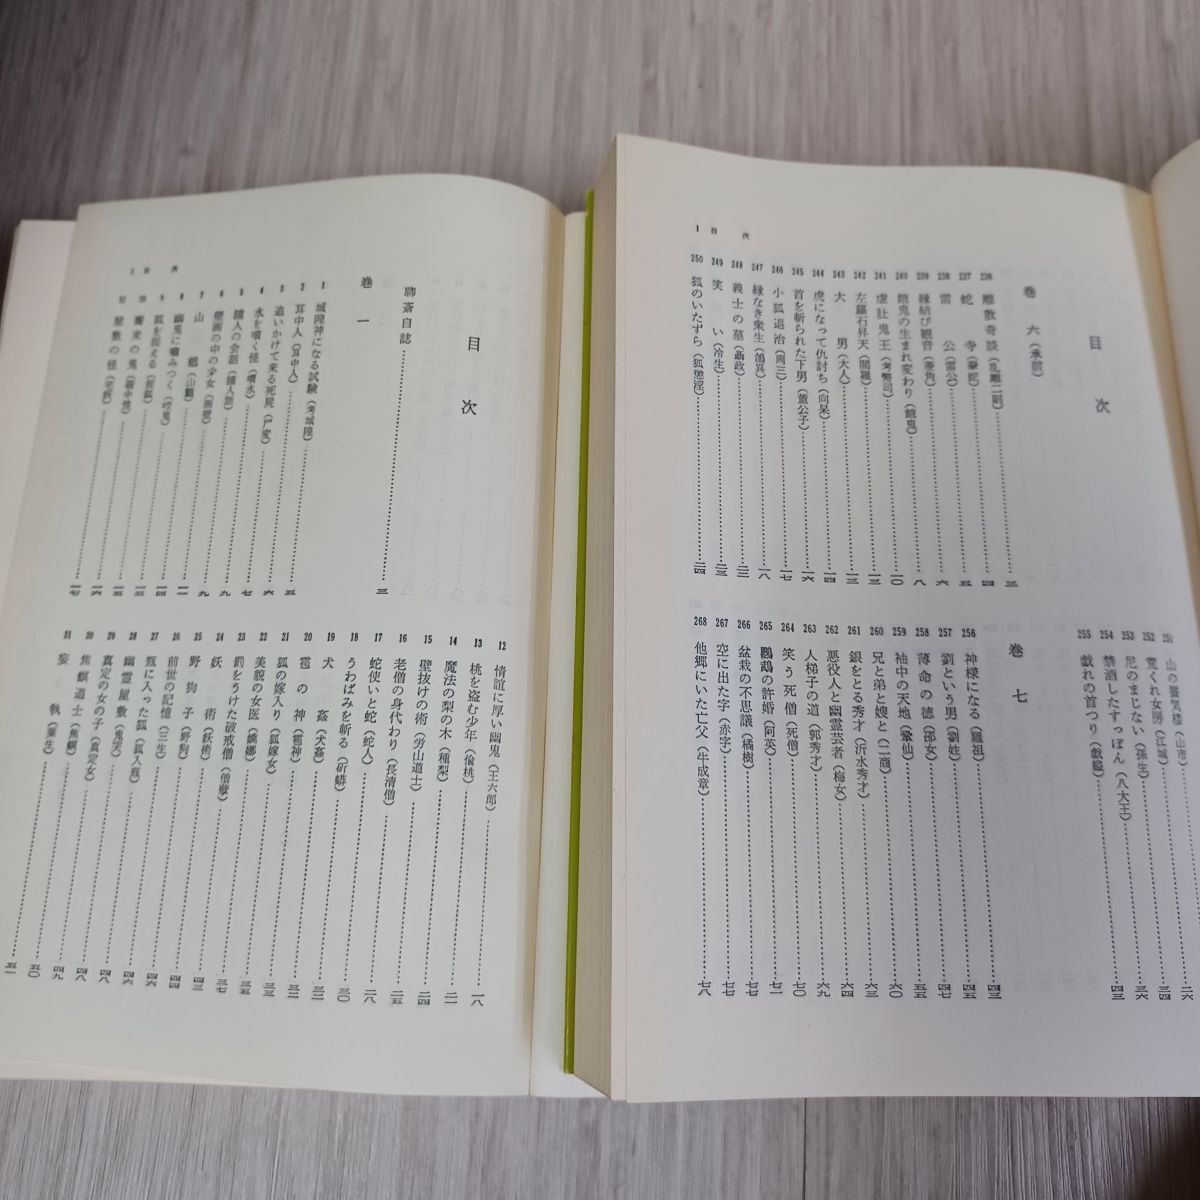 目次
聊斎自誌……三
巻一
1 城隍神になる試験（考城隍）
2 耳中人（耳中人）……五
3 追いかけて来る死屍（尸変）……六
4 水を噴く怪（噴水）……七
5 瞳人の会話（瞳人語）……九
6 壁画の中の少女（画壁）……九
7 山魈（山魈）
8 幽鬼に噛みつく（咬鬼）
9 狐を捉える（捉狐）……一四
10 蕎麦の鬼（蕎中怪）……一五
11 屋敷の怪（宅妖）
12 情誼に厚い幽鬼（王六郎）……一八
13 桃を盗む少年（偸桃）……二一
14 魔法の梨の木（種梨）
15 壁抜けの術（労山道士）……二四
16 老僧の身代わり（長清僧）……二五
17 蛇使いと蛇（蛇人）……二八
18 うわばみを斬る（斫蟒）……三〇
19 犬姦（犬姦）
20 雹の神（雹神）
21 狐の嫁入り（狐嫁女）……三三
22 美貌の女医（嬌娜）……三五
23 罰をうけた破戒僧（僧孽）
24 妖術（妖術）……四三
25 野狗子（野狗）……四四
26 前世の記憶（三生）……四六
27 瓶に入った狐（狐入瓶）
28 幽霊屋敷（鬼哭）……四八
29 真定の女の子（真定女）……四八
30 焦螟道士（焦螟）……四九
31 妄執（葉生）……五一
1 目次
目次
巻六（承前）
236 離散奇談（乱離二則）……三
237 蛇寺（豢蛇）……四
238 雷公（雷公）……五
239 縁結び観音（菱角）……六
240 餓鬼の生まれ変わり（餓鬼）……八
241 虚肚鬼王（考弊司）……一〇
242 左墓石昇天（閻羅）……一三
243 大男（大人）……一三
244 虎になって仇討ち（向杲）……一四
245 首を斬られた下男（董公子）……一六
246 小狐退治（周三）……一七
247 縁なき衆生（鴿異）……一八
248 義士の墓（聶政）……二三
249 笑い（冷生）……二三
250 狐のいたずら（狐懲淫）……二四
251 山の蜃気楼（山市）……二六
252 荒くれ女房（江城）……三四
253 尼のまじない（孫生）……三六
254 禁酒したすっぽん（八大王）……四三
255 戯れの首つり（戯縊）
巻七
256 神様になる（羅祖）……四三
257 劉という男（劉姓）……四五
258 薄命の徳（邵女）……四七
259 袖中の天地（鞏仙）……五五
260 兄と弟と嫂と（二商）……六〇
261 銀をとる秀才（沂水秀才）……六三
262 悪役人と幽霊芸者（梅女）……六四
263 人梯子の道（郭秀才）……六九
264 笑う死僧（死僧）……七〇
265 鸚鵡の許婚（阿英）……七一
266 盆栽の不思議（橘樹）……七七
267 空に出た字（赤字）……七七
268 他郷にいた亡父（牛成章）……七八